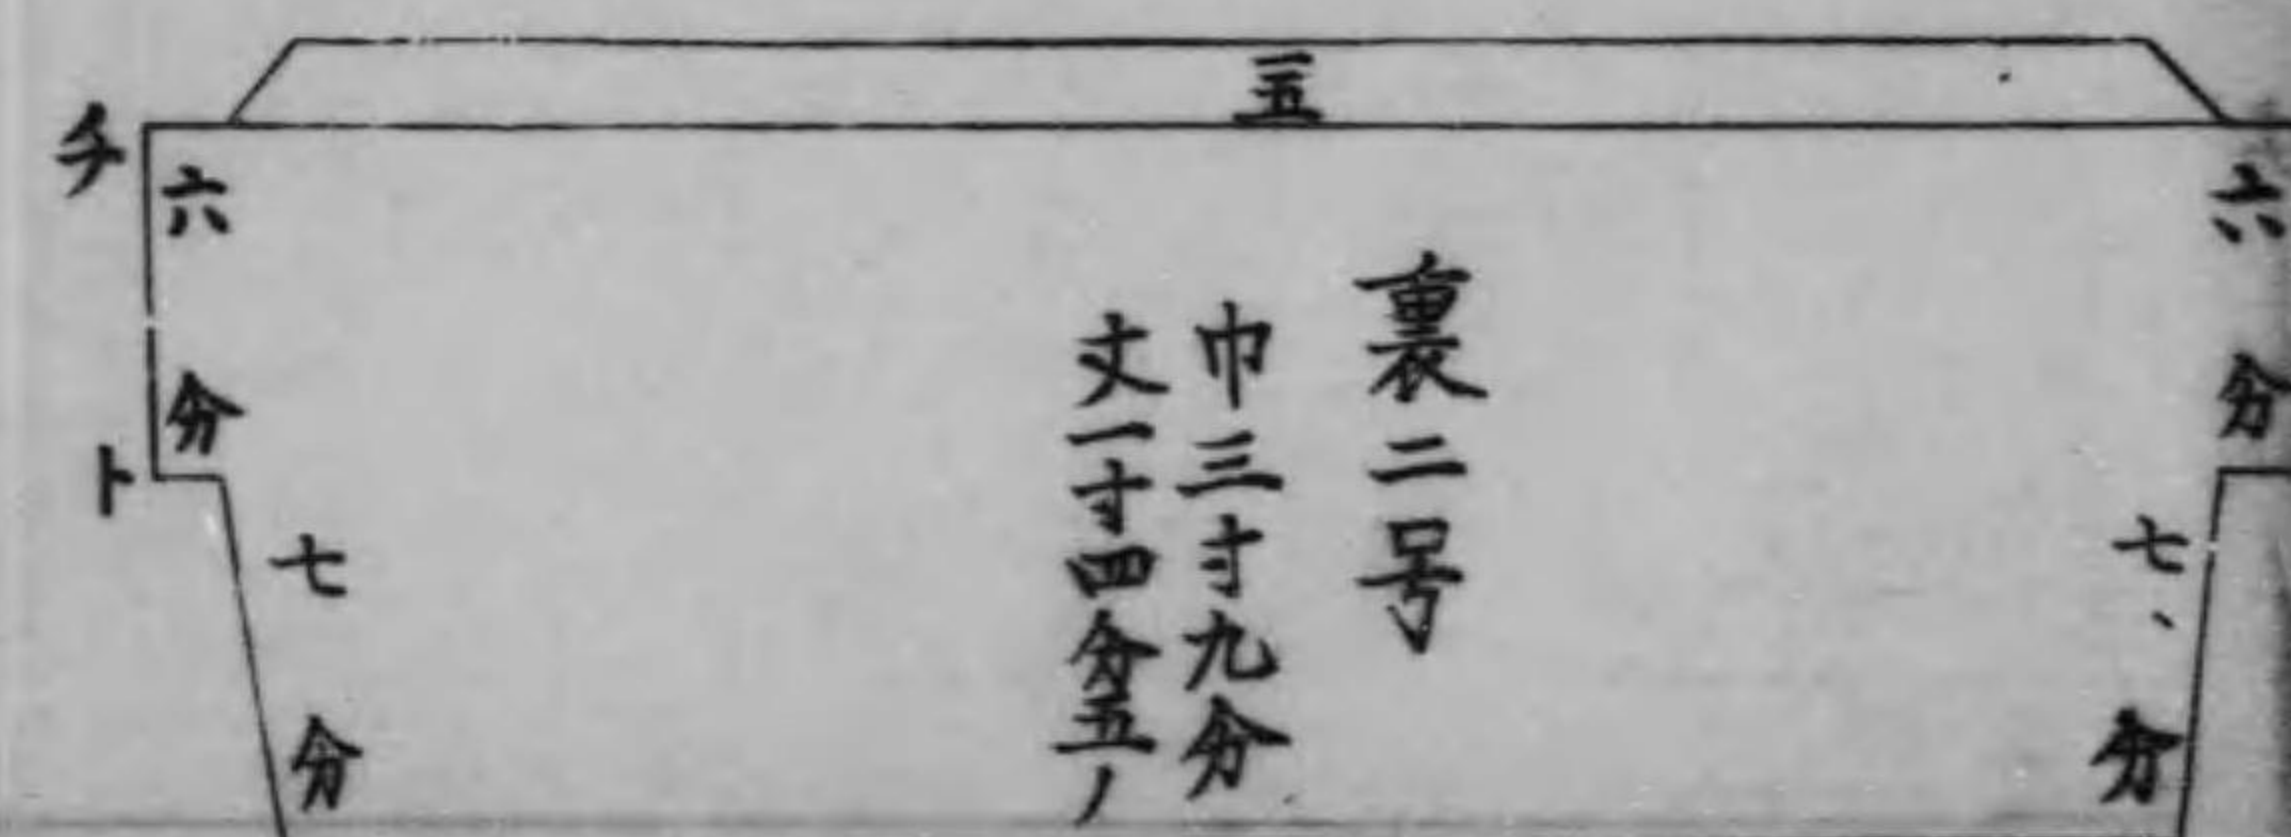 六分
七、分
裏二号
巾三寸九分
丈一寸四分五ノ
六分
七分
チ
ト